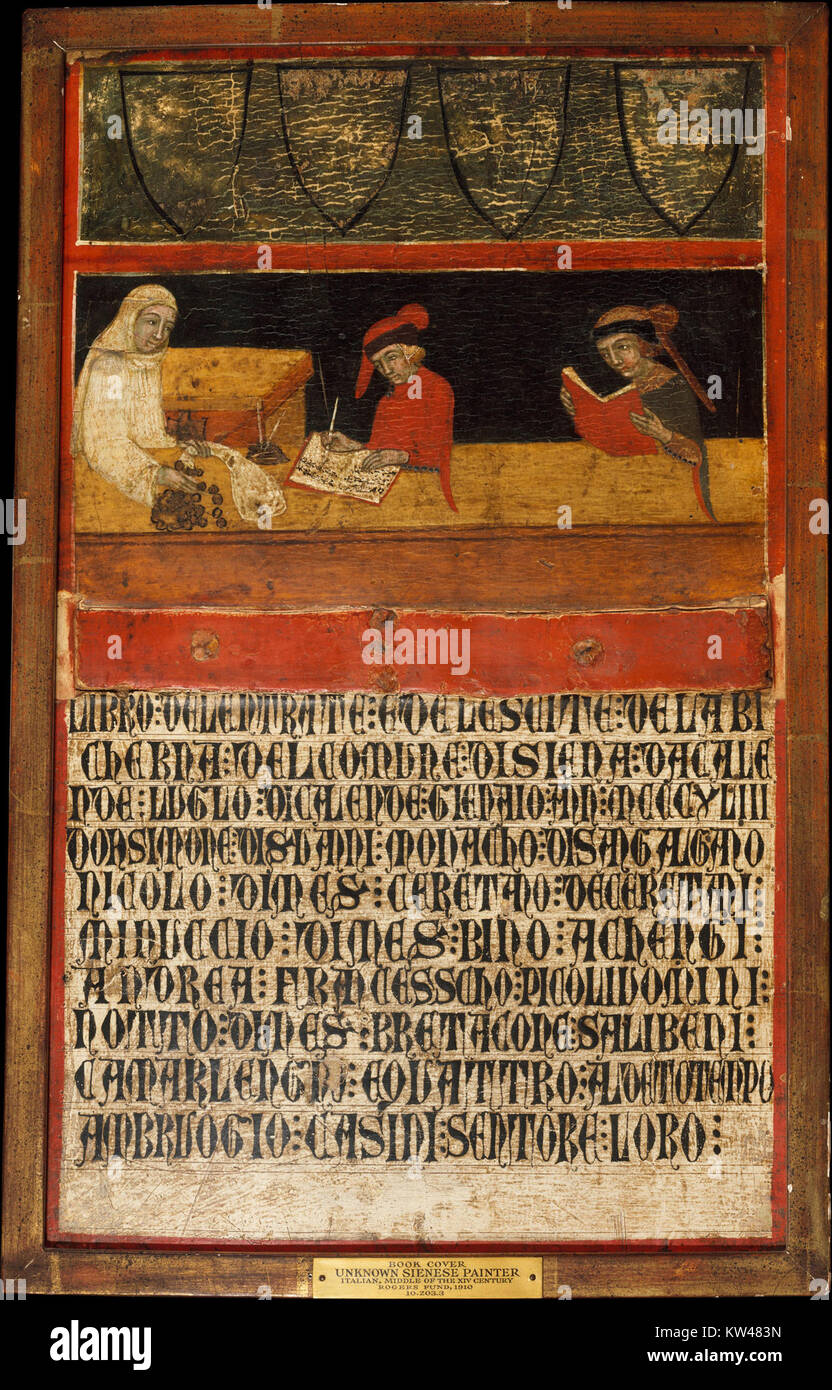 LIBRO:DELENTRATE:EDELESCITE:DELABI
CHERNA:DELCOMUNE:DISIENA:DACALE
NDE:LUGLO:DICALENDE:GIENAIO:ANN:MCCCXLIII
DONSIMONE:DISVANNI:MONACHO:DISANGALGANO
NICOLO:DIMES:CERETANO:DECERETANI:
MINUCCIO:DIMES:BINO:ACHERIGI:
ANDREA:FRANCESSCHO:PICOLIUOMINI:
NOTTO:DIMES:BRETACONE:SALIBENI:
EQUATTRO:ALDETOTENPO
AMBRUOGIO:CASINI:SENTORE:LORO:
BOOK COVER
UNKNOWN SIENESE PAINTER
ITALIAN, MIDDLE OF THE XIV CENTURY
ROGERS FUND, 1910
10.203.3
alamy
Image ID: KW483N
www.alamy.com